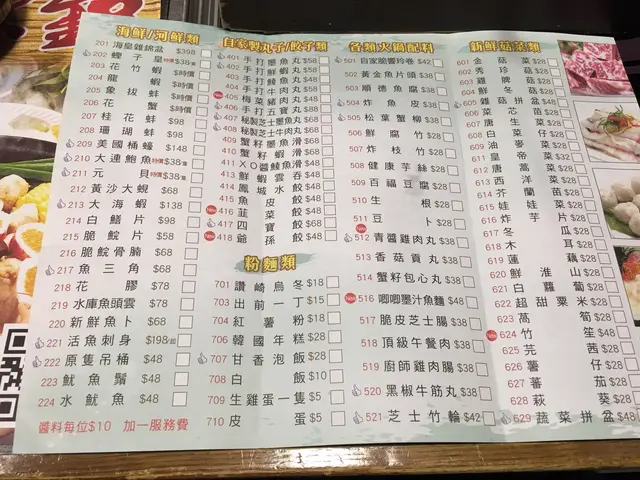 海鮮/河鮮類
201 海皇雜錦盆 $398
202 蟶子皇 特價$38/隻
203 花竹蝦 $時價
204 龍蝦 $時價
205 象拔蚌 $時價
206 花蟹 $時價
207 桂花蚌 $98
208 珊瑚蚌 $98
209 美國桶蠔 $148
210 大連鮑魚 特價$38/隻
211 元貝 特價$38/隻
212 黃沙大蜆 $68
213 大海蝦 $138
214 白鱔片 $98
215 脆鯇片 $58
216 脆鯇骨腩 $68
217 魚三角 $68
218 花膠 $78
219 水庫魚頭雲 $78
220 新鮮魚卜 $68
221 活魚刺身 $198/起
222 原隻吊桶 $48
223 魷魚鬚 $48
224 水魷魚 $48
醬料每位$10 加一服務費
自家製丸子/餃子類
401 手打墨魚丸 $58
402 手打蝦丸 $58
403 手打鯪魚丸
404 手打牛肉丸 $58
405 梅菜豬肉丸 $48
406 手打五寶丸 $88
407 秘製芝士墨魚丸 $68
408 秘製芝士牛肉丸 $68
409 蟹籽墨魚滑 $68
410 蟹籽蝦滑 $68
411 XO醬鯪魚滑 $48
413 鮮蝦雲吞 $48
414 鳳城水餃 $48
415 魚皮餃 $48
416 韮菜餃 $48
417 四寶餃 $68
418 爺孫餃 $48
粉麵類
701 讚崎烏冬 $18
703 出前一丁 $15
704 紅薯粉 $18
706 韓國年糕 $28
707 甘香泡飯 $28
708 白飯 $10
709 生雞蛋一隻 $5
710 皮蛋 $5
各類火鍋配料
501 自家脆響玲卷 $42
502 黃金魚片頭 $38
503 順德魚腐 $38
504 炸魚皮 $38
505 松葉蟹柳 $38
506 鮮腐竹 $28
507 炸枝竹 $28
508 健康芋絲 $28
509 百福豆腐 $28
510 生根 $28
511 豆卜 $28
512 青醬雞肉丸 $38
513 香菇貢丸 $38
514 蟹籽包心丸 $38
516 唧唧墨汁魚麵 $48
517 脆皮芝士腸 $38
518 頂級午餐肉 $38
519 廚師雞肉腸 $38
520 黑椒牛筋丸 $38
521 芝士竹輪 $42
新鮮菇菜類
601 金菇菜 $28
602 秀珍菇 $28
603 雞脾菇 $28
604 鮮冬菇 $28
605 雜菇拼盆 $48
606 菜芯苗 $28
607 唐生菜 $28
608 白菜仔 $28
609 油麥菜 $28
611 皇帝菜 $32
612 唐蒿菜 $28
613 西洋菜 $28
614 芥蘭苗 $28
615 娃娃菜 $28
616 炸芋片 $28
617 冬瓜 $28
618 木耳 $28
619 蓮藕 $28
620 鮮淮山 $28
621 白蘿蔔 $28
622 超甜粟米 $28
623 萵筍 $28
624 竹笙 $48
625 芫茜 $28
626 薯仔 $28
627 蕃茄 $28
628 菠菜 $28
629 蔬菜拼盆 $48